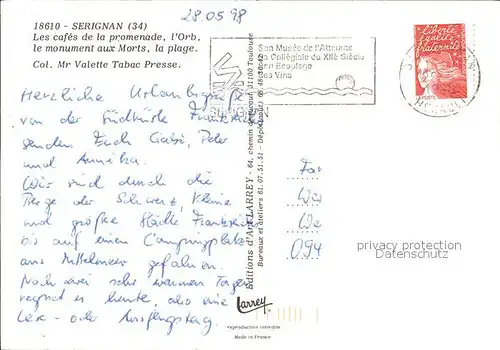 28.05.98
18610 - SERIGNAN (34)
Les cafés de la promenade, l'Orb,
le monument aux Morts, la plage.
Col. Mr Valette Tabac Presse.
Son Musée de l'Attelage
La Collégiale du XIIè Siècle
Son Ecoulage
Ses Vins
Liberté
égalité
fraternité
HERAULT
Herzliche Urlaubsgrüße
von der Südküste Frankreichs
senden Euch Gabi, Peter
und Annika.
Wir sind durch die
Berge der Schweiz, kleine
und große Städte Frankreichs
bis auf einen Campingplatz
ans Mittelmeer gefahren.
Nach zwei sehr warmen Tagen
regnet es heute, also eine
Lese- oder Ausflugstag.
Editions d'Art LARREY - 64, chemin 31100 Toulouse
Bureaux et ateliers 61.07.51.51 - Dépôt
Larrey
reproduction interdite
Made in France
Fa
We
094
privacy protection
Datenschutz